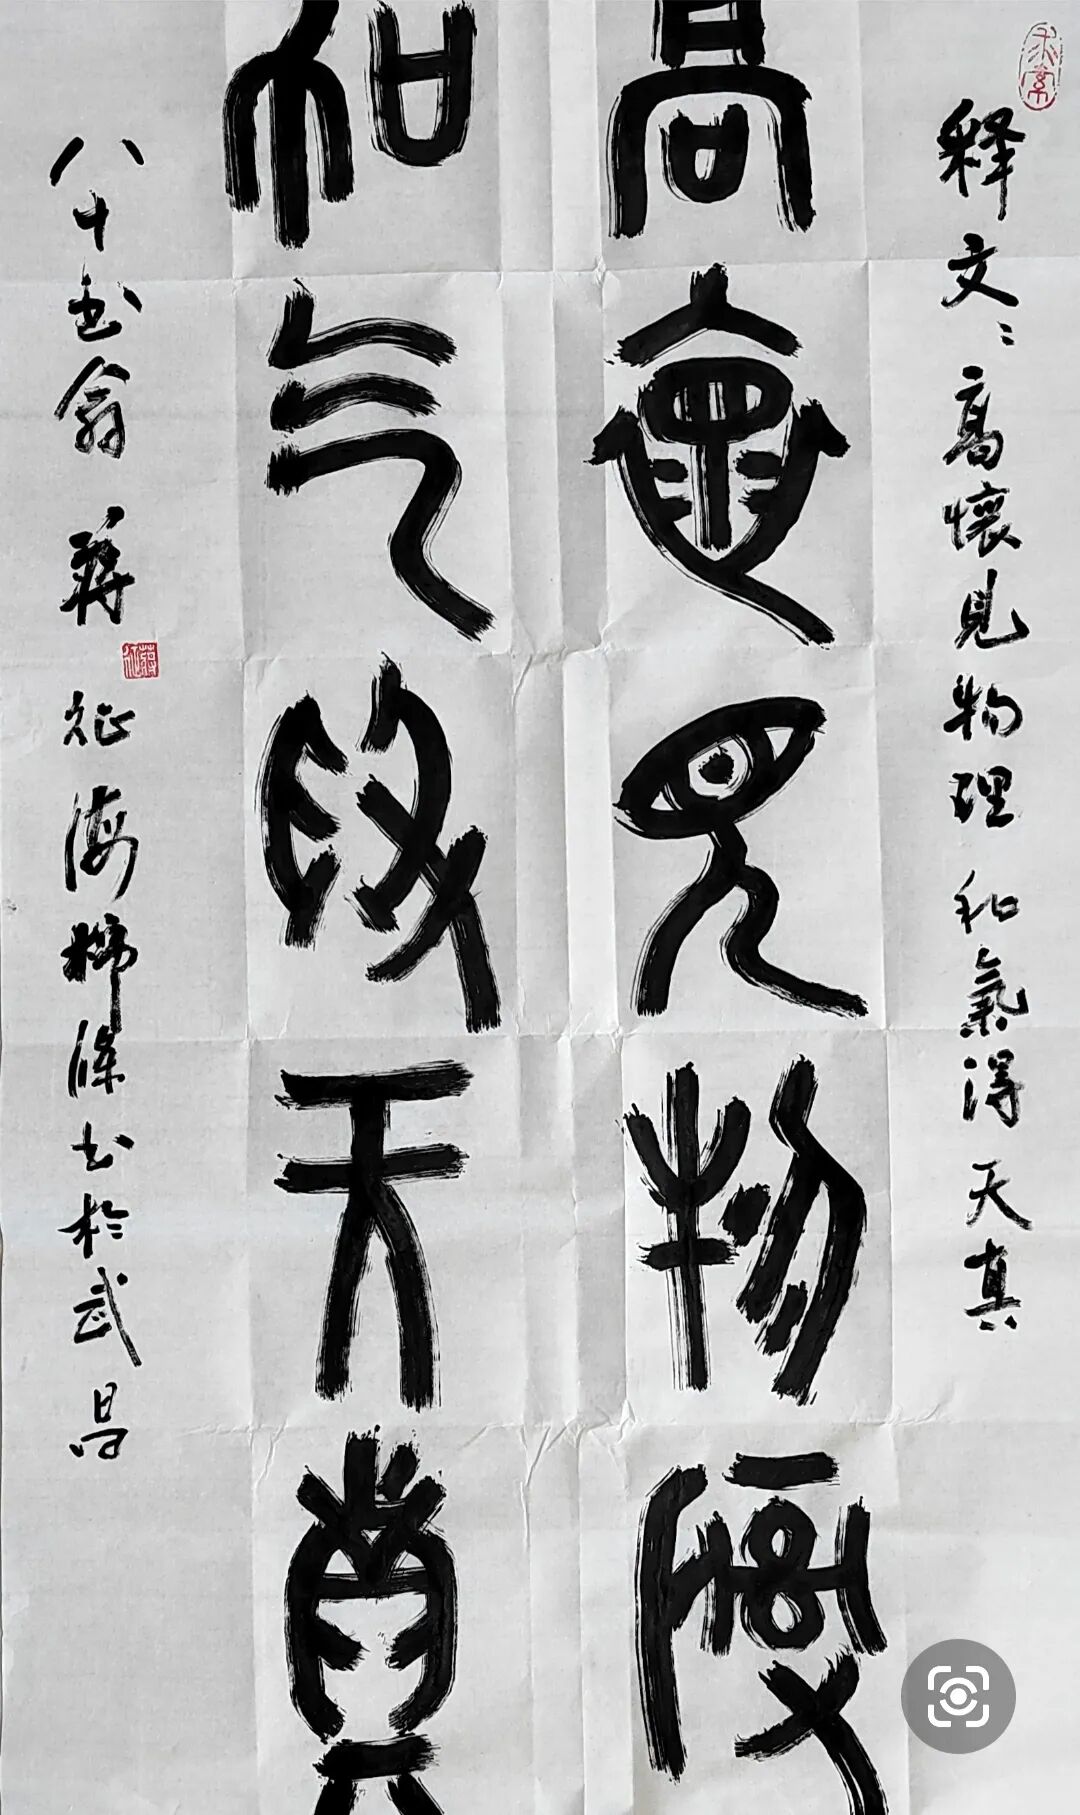 释文：高懷見物理和氣得天真
高懷見物理
和气得天真
八十书翁蔣征海
书於武昌